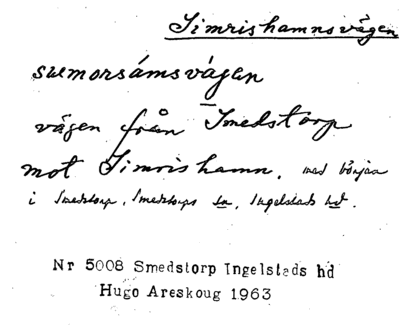 Simrishamnsvägen
sumorsámsvágen
vägen från Smedstorp
mot Simrishamn, med början
i Smedstorp, Smedstorps sn, Ingelstads hd.
Nr 5008 Smedstorp Ingelstads hd
Hugo Areskoug 1963